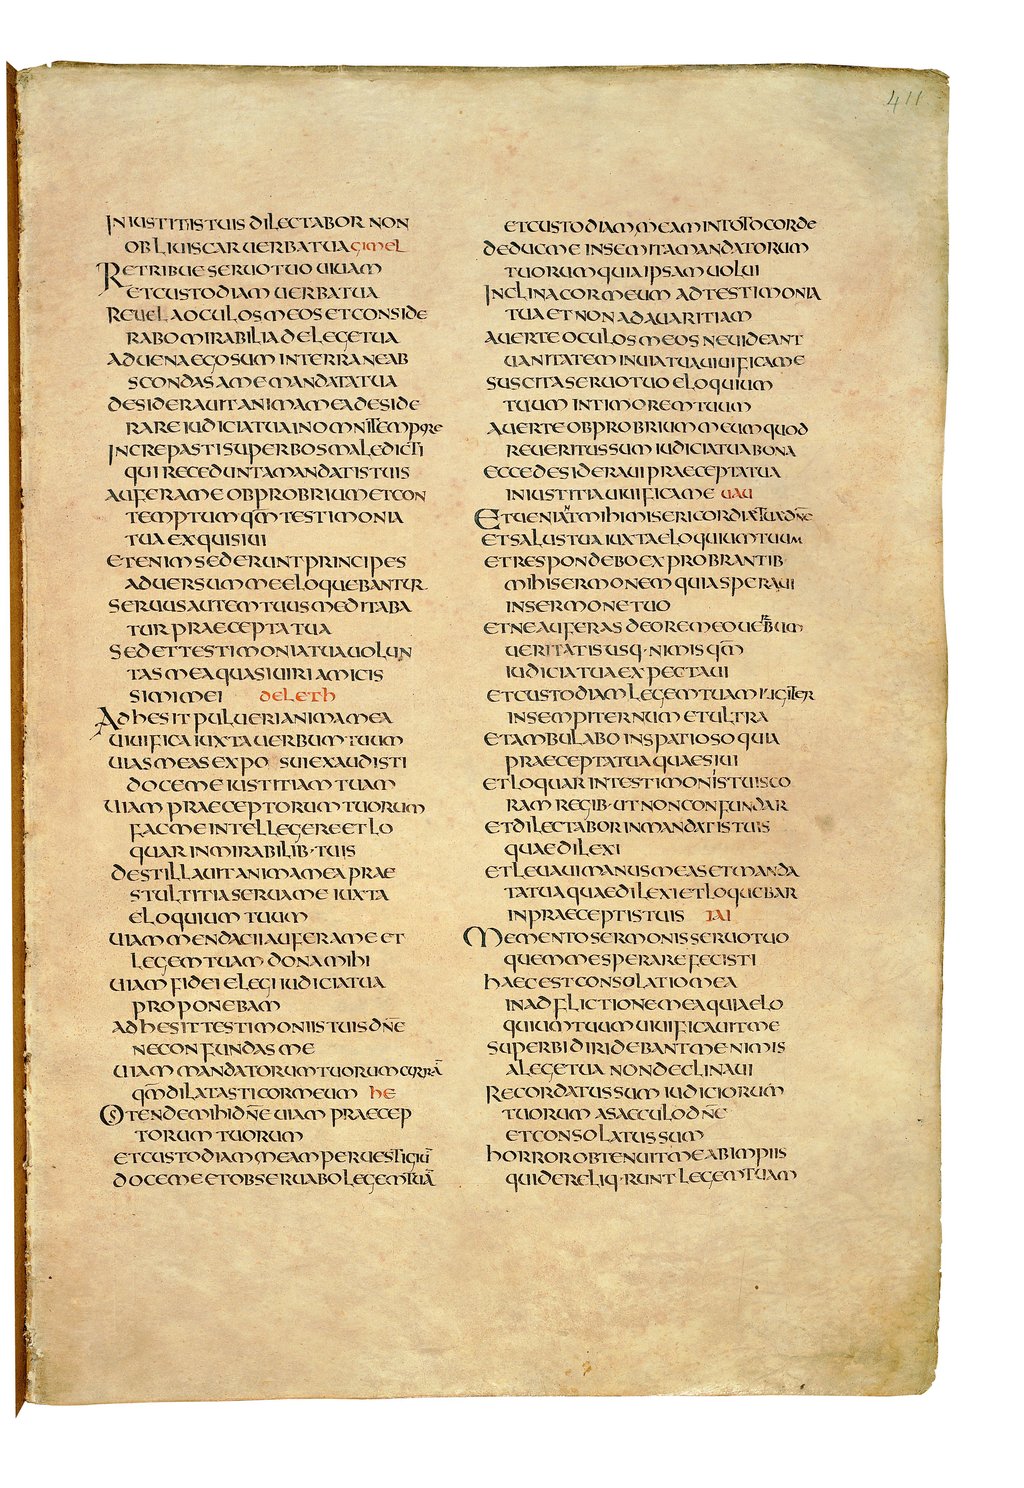 411
IN IUSTITIIS TUIS DILECTABOR NON
OBLIUISCAR UERBA TUA GIMEL
RETRIBUE SERUO TUO UIUAM
ET CUSTODIAM UERBA TUA
REUELA OCULOS MEOS ET CONSIDE
RABO MIRABILIA DE LEGE TUA
ADUENA EGO SUM IN TERRA NE AB
SCONDAS A ME MANDATA TUA
DESIDERAUIT ANIMA MEA DESIDE
RARE IUDICIA TUA IN OMNI TEMPORE
INCREPASTI SUPERBOS MALEDICTI
QUI RECEDUNT A MANDATIS TUIS
AUFER A ME OBPROBRIUM ET CON
TEMPTUM QM̄ TESTIMONIA
TUA EXQUISIUI
ETENIM SEDERUNT PRINCIPES
ADUERSUM ME ELOQUEBANTUR
SERUUS AUTEM TUUS MEDITABA
TUR PRAECEPTA TUA
SED ET TESTIMONIA TUA UOLUN
TAS MEA QUASI UIRI AMICIS
SIMI MEI DELETH
ADHESIT PULUERI ANIMA MEA
UIUIFICA IUXTA UERBUM TUUM
UIAS MEAS EXPO SUI EXAUDISTI
DOCE ME IUSTITIAM TUAM
UIAM PRAECEPTORUM TUORUM
FAC ME INTELLEGERE ET LO
QUAR IN MIRABILIB· TUIS
DESTILLAUIT ANIMA MEA PRAE
STULTITIA SERUA ME IUXTA
ELOQUIUM TUUM
UIAM MENDACII AUFER A ME ET
LEGEM TUAM DONA MIHI
UIAM FIDEI ELEGI IUDICIA TUA
PROPONEBAM
ADHESI TESTIMONIIS TUIS DN̄E
NE CONFUNDAS ME
UIAM MANDATORUM TUORUM CURRĀ
QM̄ DILATASTI COR MEUM HE
OSTENDE MIHI DN̄E UIAM PRAECEP
TORUM TUORUM
ET CUSTODIAM MEAM PER UESTIGIŪ
DOCE ME ET OBSERUABO LEGEM TUĀ
ET CUSTODIAM MEAM IN TOTO CORDE
DEDUC ME IN SEMITA MANDATORUM
TUORUM QUIA IPSAM UOLUI
INCLINA COR MEUM AD TESTIMONIA
TUA ET NON AD AUARITIAM
AUERTE OCULOS MEOS NE UIDEANT
UANITATEM IN UIA TUA UIUIFICA ME
SUSCITA SERUO TUO ELOQUIUM
TUUM IN TIMOREM TUUM
AUERTE OBPROBRIUM MEUM QUOD
REUERITUS SUM IUDICIA TUA BONA
ECCE DESIDERAUI PRAECEPTA TUA
IN IUSTITIA UIUIFICA ME UAU
ET UENIANT MIHI MISERICORDIAE TUAE DN̄E
ET SALUS TUA IUXTA ELOQUIUM TUUM
ET RESPONDEBO EXPROBRANTIB·
MIHI SERMONEM QUIA SPERAUI
IN SERMONE TUO
ET NE AUFERAS DE ORE MEO UERBUM
UERITATIS USQ· NIMIS QM̄
IUDICIA TUA EXPECTAUI
ET CUSTODIAM LEGEM TUAM IUGITER
IN SEMPITERNUM ET ULTRA
ET AMBULABO IN SPATIOSO QUIA
PRAECEPTA TUA QUAESIUI
ET LOQUAR IN TESTIMONIIS TUIS CO
RAM REGIB· UT NON CONFUNDAR
ET DILECTABOR IN MANDATIS TUIS
QUAE DILEXI
ET LEUAUI MANUS MEAS ET MANDA
TA TUA QUAE DILEXI ET LOQUEBAR
IN PRAECEPTIS TUIS ZAI
MEMENTO SERMONIS SERUO TUO
QUEM ME SPERARE FECISTI
HAEC EST CONSOLATIO MEA
IN ADFLICTIONE MEA QUIA ELO
QUIUM TUUM UIUIFICAUIT ME
SUPERBI DIRIDEBANT ME NIMIS
A LEGE TUA NON DECLINAUI
RECORDATUS SUM IUDICIORUM
TUORUM A SAECULO DN̄E
ET CONSOLATUS SUM
HORROR OBTENUIT ME AB IMPIIS
QUI DERELIQ·RUNT LEGEM TUAM